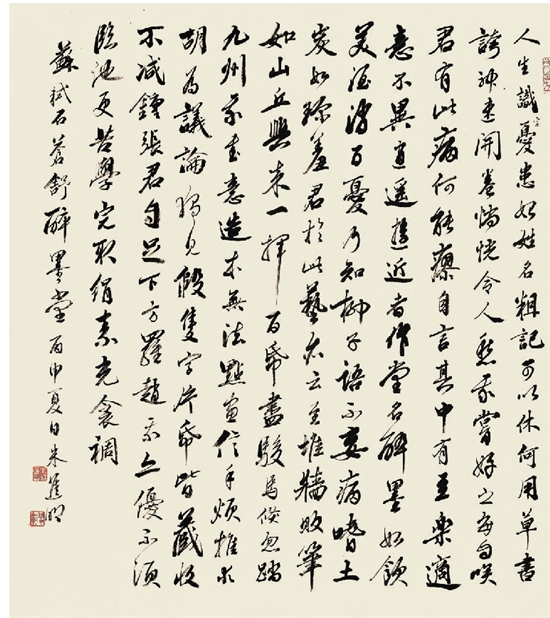 人生識字憂患始姓名粗記可以休何用草書
誇神速開卷惝恍令人愁我嘗好之每自咲
君有此病何能瘳自言其中有至樂適
意不異逍遙遊近者作堂名醉墨如飲
美酒消百憂乃知柳子語不妄病嗜土
炭如珍羞君於此藝亦云至堆牆敗筆
如山丘興來一揮百帋盡駿馬倏忽踏
九州我書意造本無法點畫信手煩推求
胡為議論獨見假隻字片帋皆藏收
不減鍾張君自足下方羅趙我亦優不須
臨池更苦學完取絹素充衾裯
蘇軾石蒼舒醉墨堂丙申夏日朱